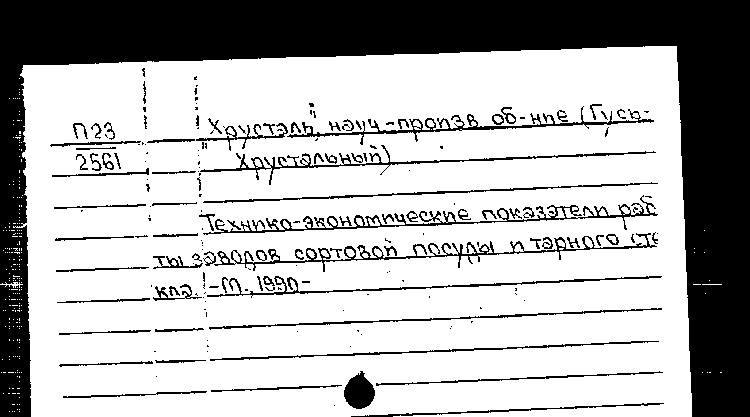 П23
2561
"Хрусталь", науч-произв об-ние (Гусь-
Хрустальный)
Технико-экономические показатели раб
ты заводов сортовой посуды и тарного сте
кла. -М., 1990-